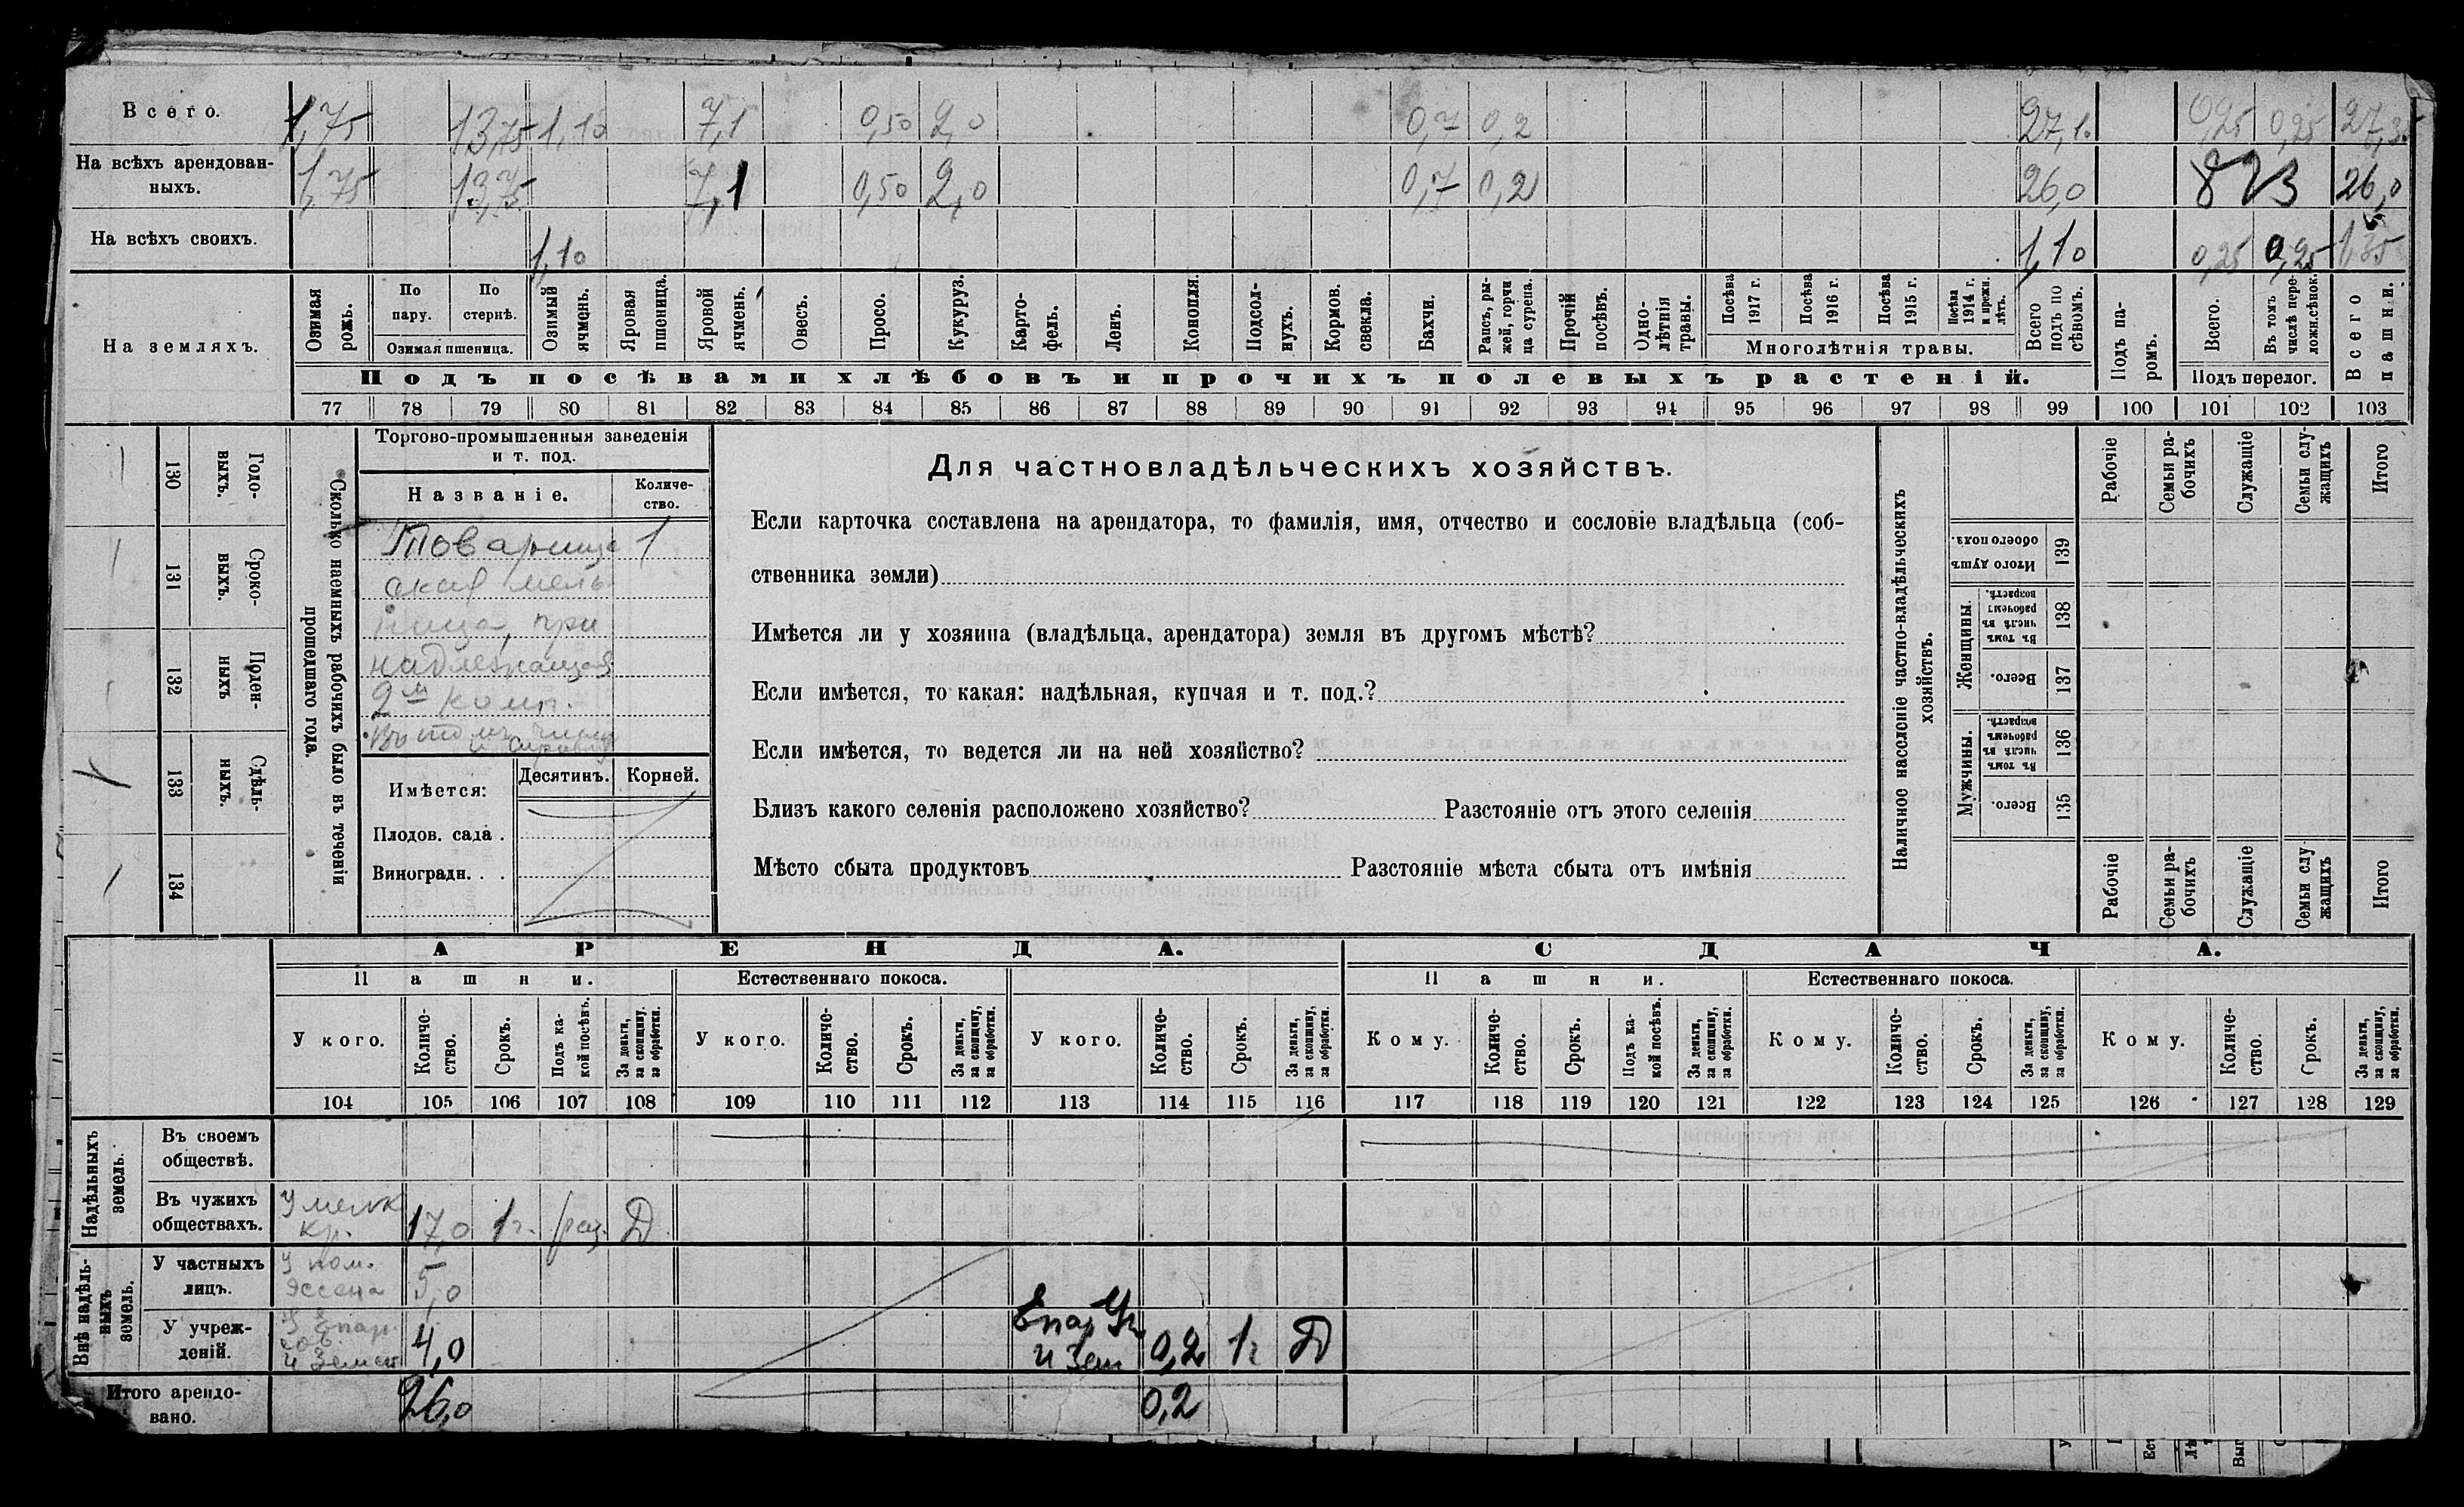 Всего. 1,75 13,75 1,10 7,1 0,50 2,0 0,7 0,2 27,1 0,25 0,25 27,35
На всѣхъ арендован-
ныхъ. 1,75 13,75 7,1 0,50 2,0 0,7 0,2 26,0 823 26,0
На всѣхъ своихъ. 1,10 1,10 0,25 0,25 1,35
На земляхъ.
Озимая рожь.
По пару.
По стернѣ.
Озимая пшеница.
Озимый ячмень.
Яровая пшеница.
Яровой ячмень.
Овесъ.
Просо.
Кукуруз.
Карто-
фель.
Ленъ.
Конопля.
Подсол-
нухъ.
Кормов. свекла.
Бахчи.
Рапсъ, ры-
жей, горчи
ца сурепа.
Прочій посѣвъ.
Одно-
лѣтнія травы.
Посѣва 1917 г.
Посѣва 1916 г.
Посѣва 1915 г.
Посѣва 1914 г. и прежн. лѣтъ.
Многолѣтнія травы.
Всего подъ по
сѣвомъ.
Подъ па-
ромъ.
Всего.
Въ томъ числѣ пере-
ложн.сѣнок.
Подъ перелог.
Всего пашни.
Подъ посѣвами хлѣбовъ и прочихъ полевыхъ растеній.
77 78 79 80 81 82 83 84 85 86 87 88 89 90 91 92 93 94 95 96 97 98 99 100 101 102 103
130 Годо-
выхъ.
131 Сроко-
ныхъ.
132 Поден-
ныхъ
133 Сдѣль-
ныхъ.
134
Сколько наемныхъ рабочихъ было въ теченіи
прошедшаго года.
Торгово-промышленныя заведенія
и т. под.
Названіе. Количе-
ство.
Товарище 1
ская мель
ница, при
надлежащая
2м комп.
Въ томъ числѣ
Имѣется: Десятинъ. Корней.
Плодов. сада .
Виноградн. . .
Для частновладѣльческихъ хозяйствъ.
Если карточка составлена на арендатора, то фамилія, имя, отчество и сословіе владѣльца (соб-
ственника земли)
Имѣется ли у хозяина (владѣльца, арендатора) земля въ другомъ мѣстѣ?
Если имѣется, то какая: надѣльная, купчая и т. под.?
Если имѣется, то ведется ли на ней хозяйство?
Близъ какого селенія расположено хозяйство? Разстояніе отъ этого селенія
Мѣсто сбыта продуктовъ Разстояніе мѣста сбыта отъ имѣнія
Наличное населеніе частно-владѣльческихъ
хозяйствъ.
Рабочіе
Семьи ра-
бочихъ
Служащіе
Семьи слу-
жащихъ
Итого
Итого душъ обоего пола. 139
Женщины.
Въ томъ числѣ въ рабочемъ возрастѣ. 138
Всего. 137
Мужчины.
Въ томъ числѣ въ рабочемъ возрастѣ. 136
Всего. 135
Рабочіе
Семьи ра-
бочихъ
Служащіе
Семьи слу-
жащихъ
Итого
АРЕНДА. СДАЧА.
Пашни. Естественнаго покоса. Пашни. Естественнаго покоса.
У кого. Количе-
ство. Срокъ. Подъ ка-
кой посѣвъ. За деньги, за скопщину, за обработки.
У кого. Количе-
ство. Срокъ. За деньги, за скопщину, за обработки.
У кого. Количе-
ство. Срокъ. За деньги, за скопщину, за обработки.
Кому. Количе-
ство. Срокъ. Подъ ка-
кой посѣвъ. За деньги, за скопщину, за обработки.
Кому. Количе-
ство. Срокъ. За деньги, за скопщину, за обработки.
Кому. Количе-
ство. Срокъ. За деньги, за скопщину, за обработки.
104 105 106 107 108 109 110 111 112 113 114 115 116 117 118 119 120 121 122 123 124 125 126 127 128 129
Надѣльныхъ земель.
Въ своемъ
обществѣ.
Въ чужихъ
обществахъ. У мелк
кр. 17,0 1г. раз. Д
Внѣ надѣль-
ныхъ земель.
У частныхъ
лицъ. У пом.
Эссена 5,0
У учреж-
деній. У Епар.
и Земст 4,0 Епар Уч
и Зем 0,2 1г Д
Итого арендо-
вано. 26,0 0,2